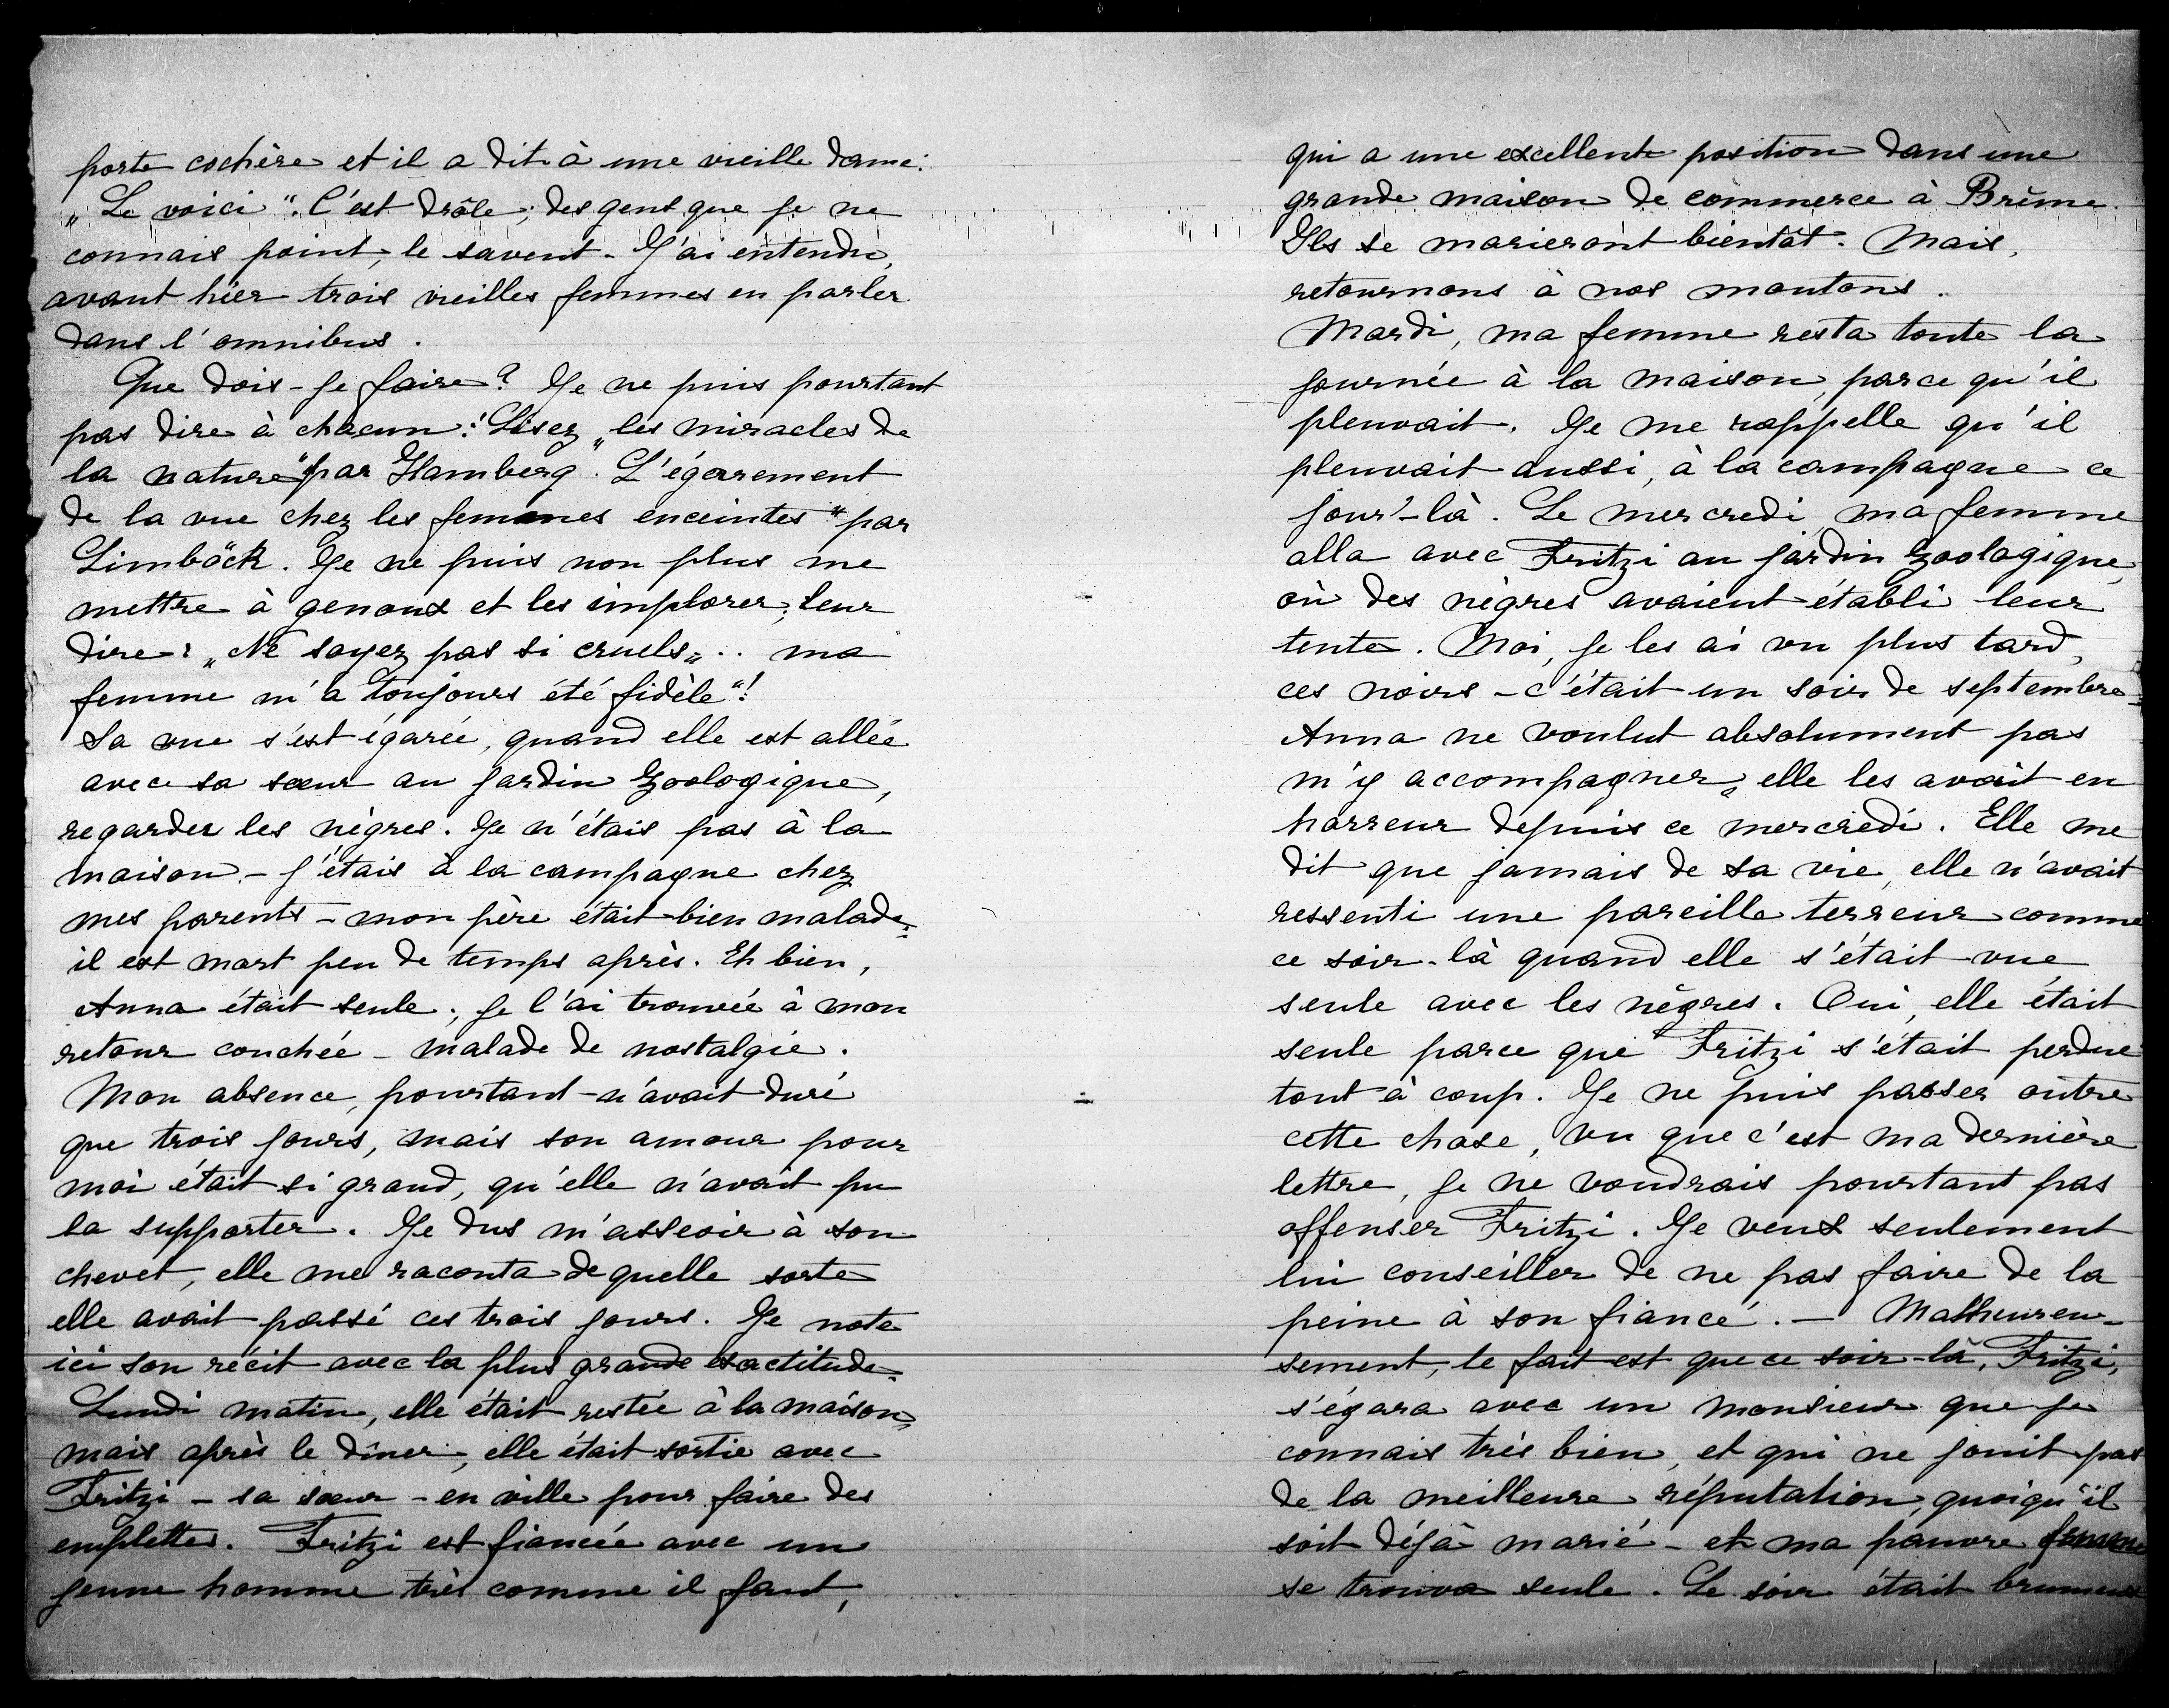 porte cochère et il a dit à une vieille dame:
„Le voici“. C'est drôle; des gens que je ne
connais point, le savent. J'ai entendu,
avant hier trois vieilles femmes en parler
dans l'omnibus.
Que dois-je faire? Je ne puis pourtant
pas dire à chacun: Lisez „les miracles de
la nature“ par Hamberg. L'égarement
de la vue chez les femmes enceintes“ par
Limböck. Je ne puis non plus me
mettre à genoux et les implorer, leur
dire: „Ne soyez pas si cruels„.. ma
femme m'a toujours été fidèle“!
Sa vue s'est égarée, quand elle est allée
avec sa sœur au jardin zoologique,
regarder les nègres. Je n'étais pas à la
maison - j'étais à la campagne chez
mes parents - mon père était bien malade;
il est mort peu de temps après. Eh bien,
Anna était seule; je l'ai trouvée à mon
retour couchée - malade de nostalgie.
Mon absence, pourtant n'avait duré
que trois jours, mais son amour pour
moi était si grand, qu'elle n'avait pu
la supporter. Je dus m'asseoir à son
chevet, elle me raconta de quelle sorte
elle avait passé ces trois jours. Je note
ici son récit avec la plus grande exactitude.
Lundi matin, elle était restée à la maison,
mais après le dîner, elle était sortie avec
Fritzi - sa sœur - en ville pour faire des
emplettes. Fritzi est fiancée avec un
jeune homme très comme il faut,
qui a une excellente position dans une
grande maison de commerce à Brême.
Ils se marieront bientôt. Mais,
retournons à nos moutons.
Mardi, ma femme resta toute la
journée à la maison, parce qu'il
pleuvait. Je me rappelle qu'il
pleuvait aussi, à la campagne ce
jour-là. Le mercredi, ma femme
alla avec Fritzi au jardin zoologique,
où des nègres avaient établi leur
tente. Moi, je les ai vu plus tard,
ces noirs - c'était un soir de septembre -
Anna ne voulut absolument pas
m'y accompagner, elle les avait en
horreur depuis ce mercredi. Elle me
dit que jamais de sa vie, elle n'avait
ressenti une pareille terreur comme
ce soir-là quand elle s'était vue
seule avec les nègres. Oui, elle était
seule parce que Fritzi s'était perdue
tout à coup. Je ne puis passer outre
cette chose, vu que c'est ma dernière
lettre, je ne voudrais pourtant pas
offenser Fritzi. Je veux seulement
lui conseiller de ne pas faire de la
peine à son fiancé. - Malheureu-
sement, le fait est que ce soir-là, Fritzi,
s'égara avec un monsieur que je
connais très bien, et qui ne jouit pas
de la meilleure réputation, quoiqu'il
soit déjà marié - et ma pauvre femme
se trouva seule. Le soir était brumeux